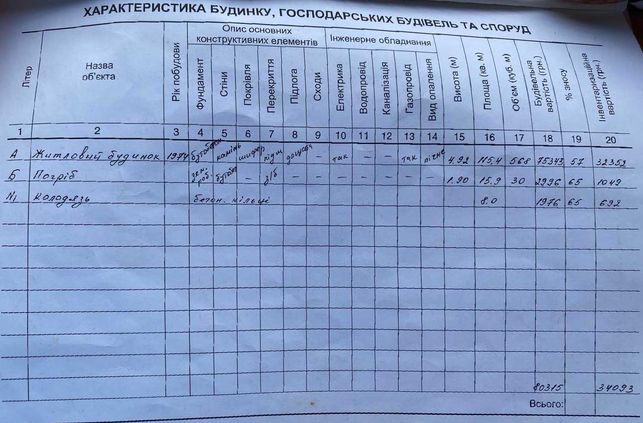 ХАРАКТЕРИСТИКА БУДИНКУ, ГОСПОДАРСЬКИХ БУДІВЕЛЬ ТА СПОРУД
Літер Назва об'єкта Рік побудови Опис основних конструктивних елементів Інженерне обладнання Висота (м) Площа (кв. м) Об'єм (куб. м) Будівельна вартість (грн.) % зносу Інвентаризаційна вартість (грн.)
Фундамент Стіни Покрівля Перекриття Підлога Сходи Електрика Водопровід Каналізація Газопровід Вид опалення
1 2 3 4 5 6 7 8 9 10 11 12 13 14 15 16 17 18 19 20
А Житловий будинок 1974 бутобетон камінь шифер дощата – так – – так пічне 4,92 115,4 568 75343 57 32352
Б Погріб бутобет – з/б – – – – – – – 1.90 15,9 30 2996 65 1049
№1 Колодязь бетон. кільці 8.0 1976 65 692
80315 34093
Всього: